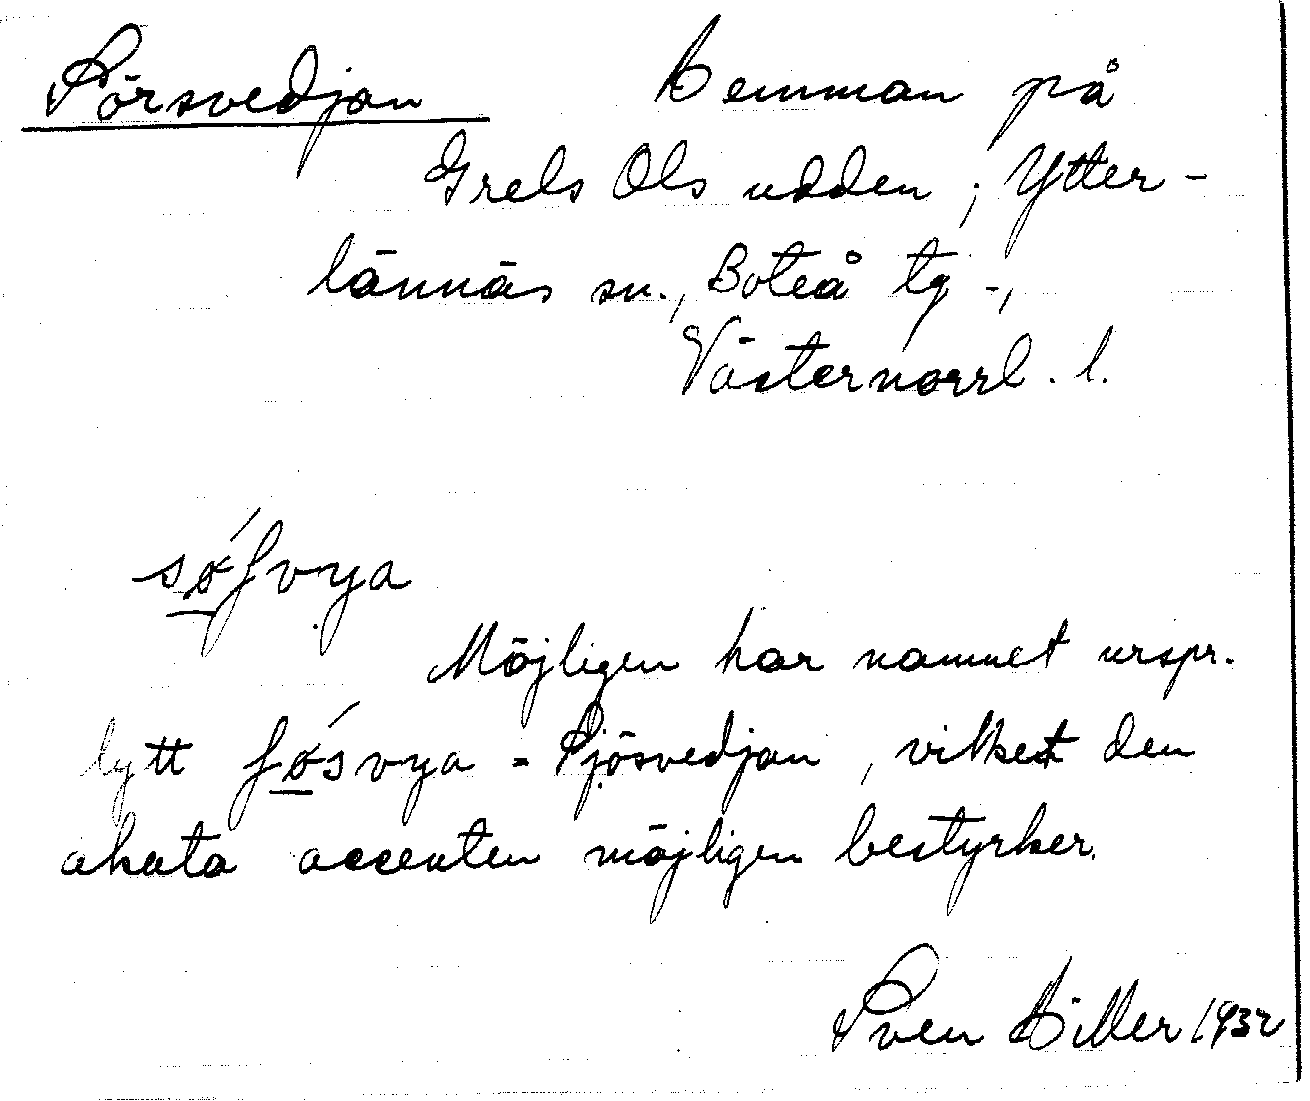 Sörsvedjan Hemman på
Grels Ols udden, Ytter-
lännäs sn., Boteå tg -,
Västernorrl. l.
sǿʃvya
Möjligen har namnet urspr.
lytt ʃǿsvya = Sjösvedjan, vilket den
akuta accenten möjligen bestyrker.
Sven Hiller 1932